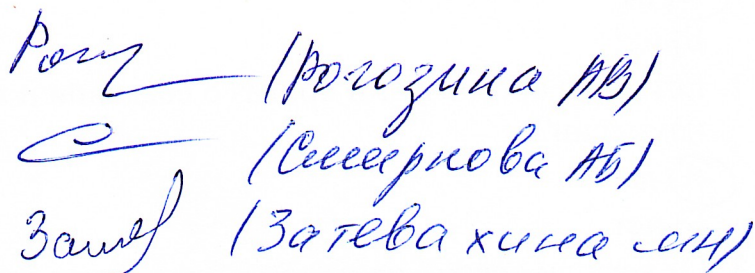 Рог (Рогозина АВ)
(Смирнова АБ)
Зате (Затевахина МН)